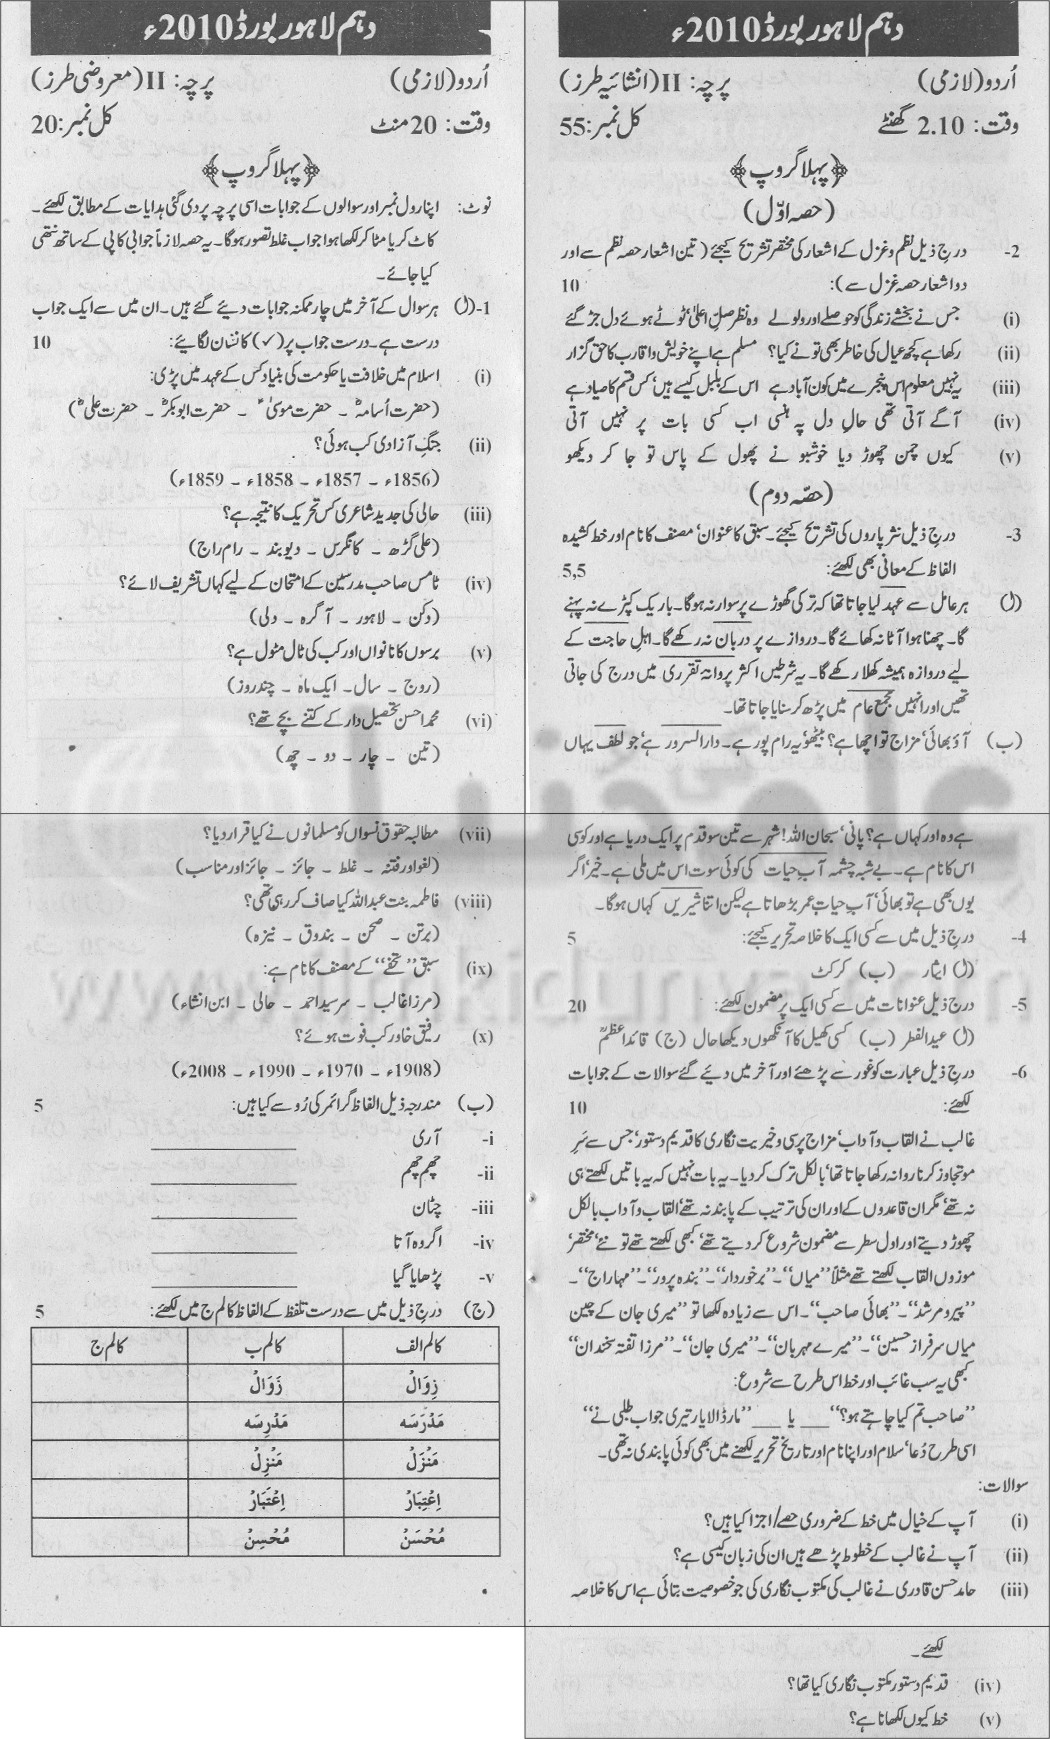 دہم لاہور بورڈ 2010ء
اُردو (لازمی) پرچہ: II (انشائیہ طرز)
وقت: 2.10 گھنٹے کل نمبر: 55
﴿پہلا گروپ﴾
(حصہ اوّل)
2- درج ذیل نظم و غزل کے اشعار کی مختصر تشریح کیجئے (تین اشعار حصہ نظم سے اور
دو اشعار حصہ غزل سے): 10
(i) جس نے بخشے زندگی کو حوصلے اور ولولے وہ نظر صلِ اعلیٰ ٹوٹے ہوئے دل جڑ گئے
(ii) رکھا ہے کچھ عیال کی خاطر بھی تو نے کیا؟ مسلم ہے اپنے خویش و اقارب کا حق گزار
(iii) یہ نہیں معلوم اس پنجرے میں کون آباد ہے اس کے بلبل کیسے ہیں، کس قسم کا صیاد ہے
(iv) آگے آتی تھی حالِ دل پہ ہنسی اب کسی بات پر نہیں آتی
(v) کیوں چمن چھوڑ دیا خوشبو نے پھول کے پاس تو جا کر دیکھو
(حصّہ دوم)
3- درج ذیل نثر پاروں کی تشریح کیجئے۔ سبق کا عنوان، مصنف کا نام اور خط کشیدہ
الفاظ کے معانی بھی لکھئے: 5,5
(ا) ہر عامل سے عہد لیا جاتا تھا کہ ترکی گھوڑے پر سوار نہ ہوگا۔ باریک کپڑے نہ پہنے
گا۔ چھنا ہوا آٹا نہ کھائے گا۔ دروازے پر دربان نہ رکھے گا۔ اہلِ حاجت کے
لیے دروازہ ہمیشہ کھلا رکھے گا۔ یہ شرطیں اکثر پروانۂ تقرری میں درج کی جاتی
تھیں اور انہیں مجمع عام میں پڑھ کر سنایا جاتا تھا۔
(ب) آؤ بھائی، مزاج تو اچھا ہے؟ بیٹھو، یہ رام پور ہے۔ دارالسرور ہے، جو لطف یہاں
ہے وہ اور کہاں ہے؟ پانی، سبحان اللہ! شہر سے تین سو قدم پر ایک دریا ہے اور کوسی
اس کا نام ہے۔ بے شبہ چشمہ آبِ حیات کی کوئی سوت اس میں ملی ہے۔ خیر، اگر
یوں بھی ہے تو بھائی، آبِ حیات عمر بڑھاتا ہے لیکن اتنا شیریں کہاں ہوگا۔
4- درج ذیل میں سے کسی ایک کا خلاصہ تحریر کیجئے: 5
(ا) ایثار (ب) کرکٹ
5- درج ذیل عنوانات میں سے کسی ایک پر مضمون لکھئے: 20
(ا) عیدالفطر (ب) کسی کھیل کا آنکھوں دیکھا حال (ج) قائداعظمؒ
6- درج ذیل عبارت کو غور سے پڑھئے اور آخر میں دیئے گئے سوالات کے جوابات
لکھئے: 10
غالب نے القاب و آداب، مزاج پرسی و خیریت نگاری کا قدیم دستور، جس سے سَرِ
مو تجاوز کرنا روا نہ رکھا جاتا تھا، بالکل ترک کر دیا۔ یہ بات نہیں کہ یہ باتیں لکھتے ہی
نہ تھے، مگر ان قاعدوں کے اور ان کی ترتیب کے پابند نہ تھے، القاب و آداب بالکل
چھوڑ دیتے اور اول سطر سے مضمون شروع کر دیتے تھے، کبھی لکھتے تھے تو نئے، مختصر،
موزوں القاب لکھتے تھے مثلاً ”میاں“۔ ”برخوردار“۔ ”بندہ پرور“۔ ”مہاراج“۔
”پیرو مرشد“۔ ”بھائی صاحب“۔ اس سے زیادہ لکھا تو ”میری جان کے چین
میاں سرفراز حسین“۔ ”میرے مہربان“۔ ”میری جان“۔ ”مرزا تفتہ سخندان“
کبھی یہ سب غائب اور خط اس طرح سے شروع:
”صاحب تم کیا چاہتے ہو؟“ ___ یا ___ ”مار ڈالا یار تیری جواب طلبی نے“
اسی طرح دُعا، سلام اور اپنا نام اور تاریخ تحریر لکھنے میں بھی کوئی پابندی نہ تھی۔
سوالات:
(i) آپ کے خیال میں خط کے ضروری حصے/اجزا کیا ہیں؟
(ii) آپ نے غالب کے خطوط پڑھے ہیں ان کی زبان کیسی ہے؟
(iii) حامد حسن قادری نے غالب کی مکتوب نگاری کی جو خصوصیت بتائی ہے اس کا خلاصہ
لکھئے۔
(iv) قدیم دستور مکتوب نگاری کیا تھا؟
(v) خط کیوں لکھا تا ہے؟
دہم لاہور بورڈ 2010ء
اُردو (لازمی) پرچہ: II (معروضی طرز)
وقت: 20 منٹ کل نمبر: 20
﴿پہلا گروپ﴾
نوٹ: اپنا رول نمبر اور سوالوں کے جوابات اسی پرچہ پر دی گئی ہدایات کے مطابق لکھئے۔
کاٹ کر یا مٹا کر لکھا ہوا جواب غلط تصور ہوگا۔ یہ حصہ لازماً جوابی کاپی کے ساتھ نتھی
کیا جائے۔
1-(ا) ہر سوال کے آخر میں چار ممکنہ جوابات دیئے گئے ہیں۔ ان میں سے ایک جواب
درست ہے۔ درست جواب پر (✓) کا نشان لگائیے: 10
(i) اسلام میں خلافت یا حکومت کی بنیاد کس کے عہد میں پڑی:
(حضرت اُسامہؓ - حضرت موسیٰؑ - حضرت ابوبکرؓ - حضرت علیؓ)
(ii) جنگِ آزادی کب ہوئی؟
(1856ء - 1857ء - 1858ء - 1859ء)
(iii) حالی کی جدید شاعری کس تحریک کا نتیجہ ہے؟
(علی گڑھ - کانگرس - دیوبند - رام راج)
(iv) ٹامسن صاحب مدرسین کے امتحان کے لیے کہاں تشریف لائے؟
(دکن - لاہور - آگرہ - دلی)
(v) برسوں کا نانواں اور کب کی ٹال مٹول ہے؟
(روج - سال - ایک ماہ - چند روز)
(vi) محمد احسن تحصیل دار کے کتنے بچے تھے؟
(تین - چار - دو - چھ)
(vii) مطالبہ حقوق نسواں کو مسلمانوں نے کیا قرار دیا؟
(لغو اور فتنہ - غلط - جائز - جائز اور مناسب)
(viii) فاطمہ بنت عبداللہ کیا صاف کر رہی تھی؟
(برتن - صحن - بندوق - نیزہ)
(ix) سبق ”تحفے“ کے مصنف کا نام ہے:
(مرزا غالب - سرسید احمد - حالی - ابن انشاء)
(x) رفیق خاور کب فوت ہوئے؟
(1908ء - 1970ء - 1990ء - 2008ء)
(ب) مندرجہ ذیل الفاظ گرائمر کی رُو سے کیا ہیں: 5
i- آری
ii- چھم چھم
iii- چٹان
iv- اگر وہ آتا
v- پڑھایا گیا
(ج) درج ذیل میں سے درست تلفظ کے الفاظ کالم ج میں لکھئے: 5
کالم الف کالم ب کالم ج
زِوَالْ زَوَالْ
مَدْرَسَہ مَدْرِسَہ
مَنْزَلْ مَنْزِلْ
اِعْتِبَارْ اِعْتَبَارْ
مُحْسَنْ مُحْسِنْ